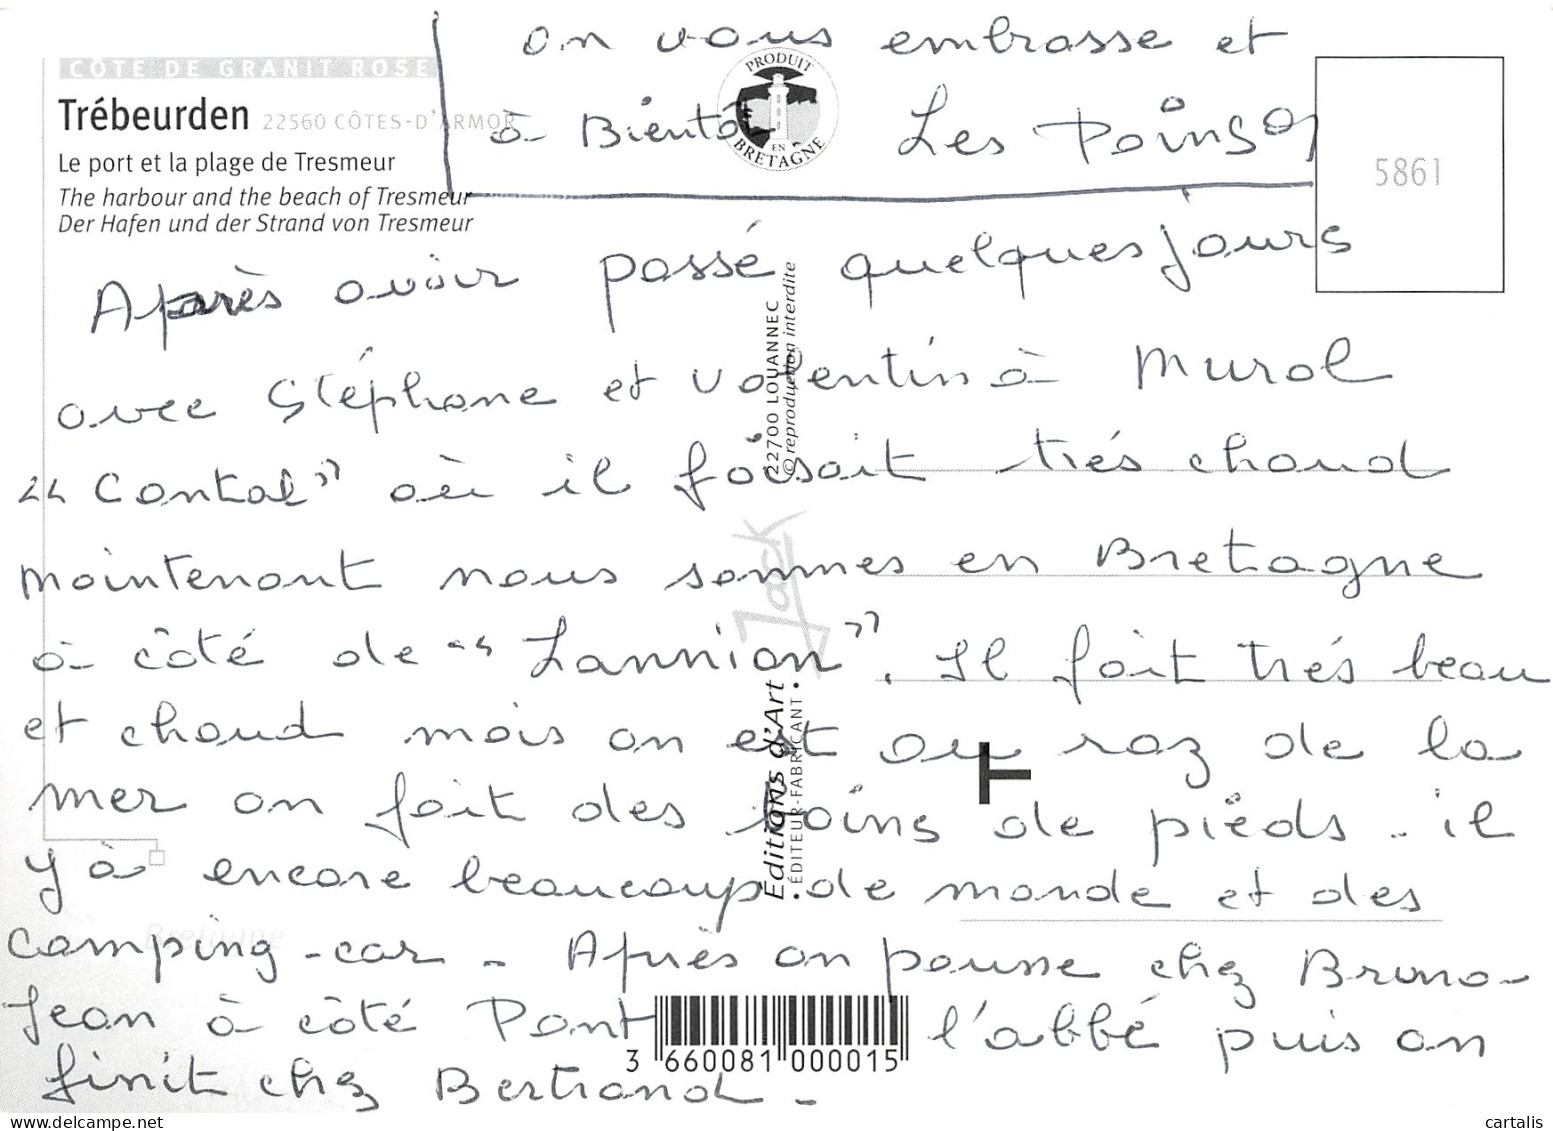 CÔTE DE GRANIT ROSE
Trébeurden 22560 CÔTES-D'ARMOR
Le port et la plage de Tresmeur
The harbour and the beach of Tresmeur
Der Hafen und der Strand von Tresmeur
on vous embrasse et
à Bientôt Les
PRODUIT EN BRETAGNE
5861
Après avoir passé quelques jours
avec Stéphane et Valentin à Murol
"Cantal" où il faisait trés chaud
maintenant nous sommes en Bretagne
à côté de "Lannion". Il fait trés beau
et chaud mais on est au raz de la
mer on fait des bains de pieds - il
y à encore beaucoup de monde et des
camping-car - Après on pousse chez Bruno-
Jean à côté Pont l'abbé puis on
finit chez Bertrand -
22700 LOUANNEC
© reproduction interdite
Jack
Éditions d'Art
• ÉDITEUR-FABRICANT •
T
Bretagne
3 660081 000015
delcampe.net
cartalis